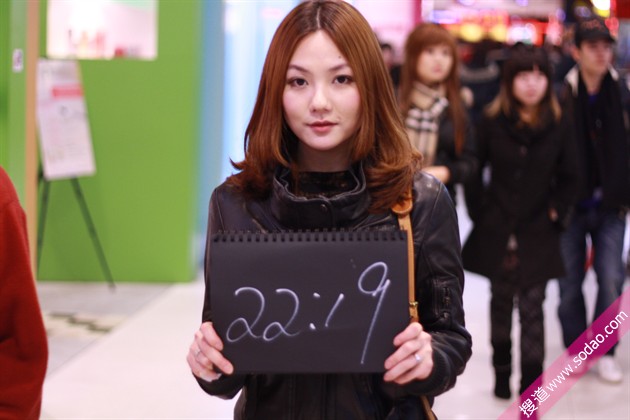 22:19
搜道 www.sodao.com